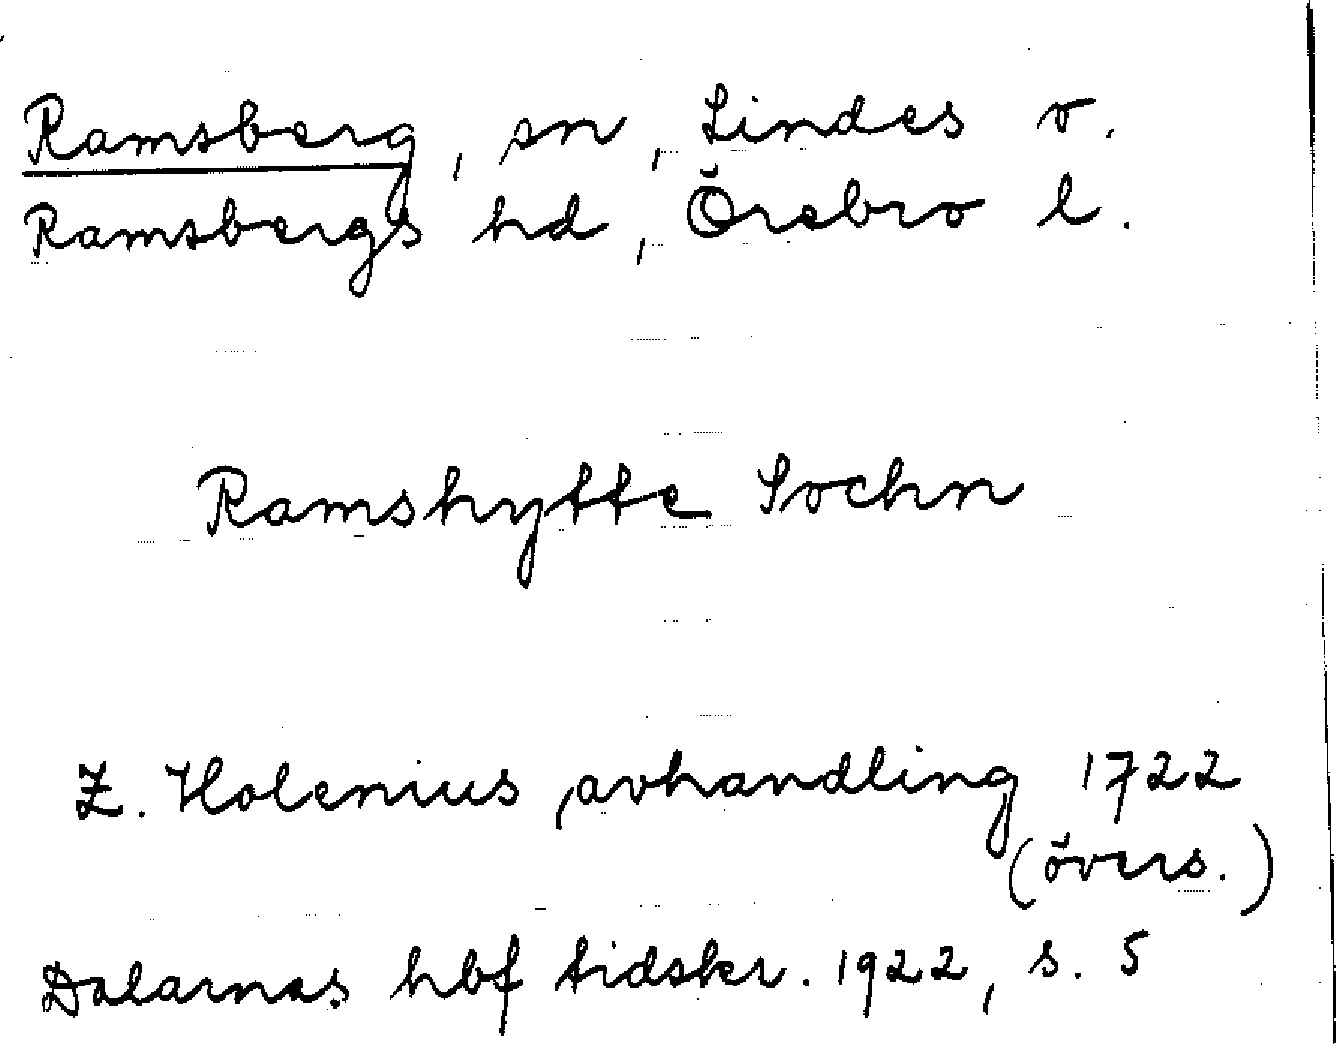 Ramsberg, sn, Lindes o.
Ramsbergs hd, Örebro l.
Ramshytte Sochn
Z. Holenius, avhandling 1722
(övers.)
Dalarnas hbf tidskr. 1922, s. 5